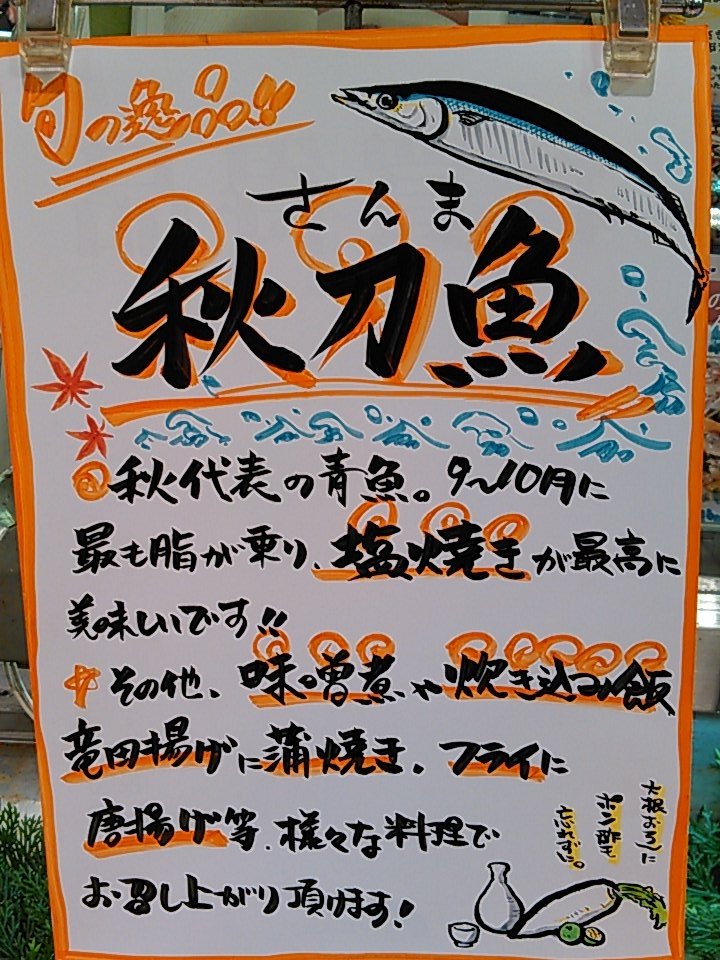 旬の逸品!!
さんま
秋刀魚
秋代表の青魚。9〜10月に
最も脂が乗り、塩焼きが最高に
美味しいです!!
その他、味噌煮や炊き込み飯、
竜田揚げに蒲焼き、フライに
唐揚げ等、様々な料理で
お召し上がり頂けます!
大根おろしに
ポン酢も
忘れずに。